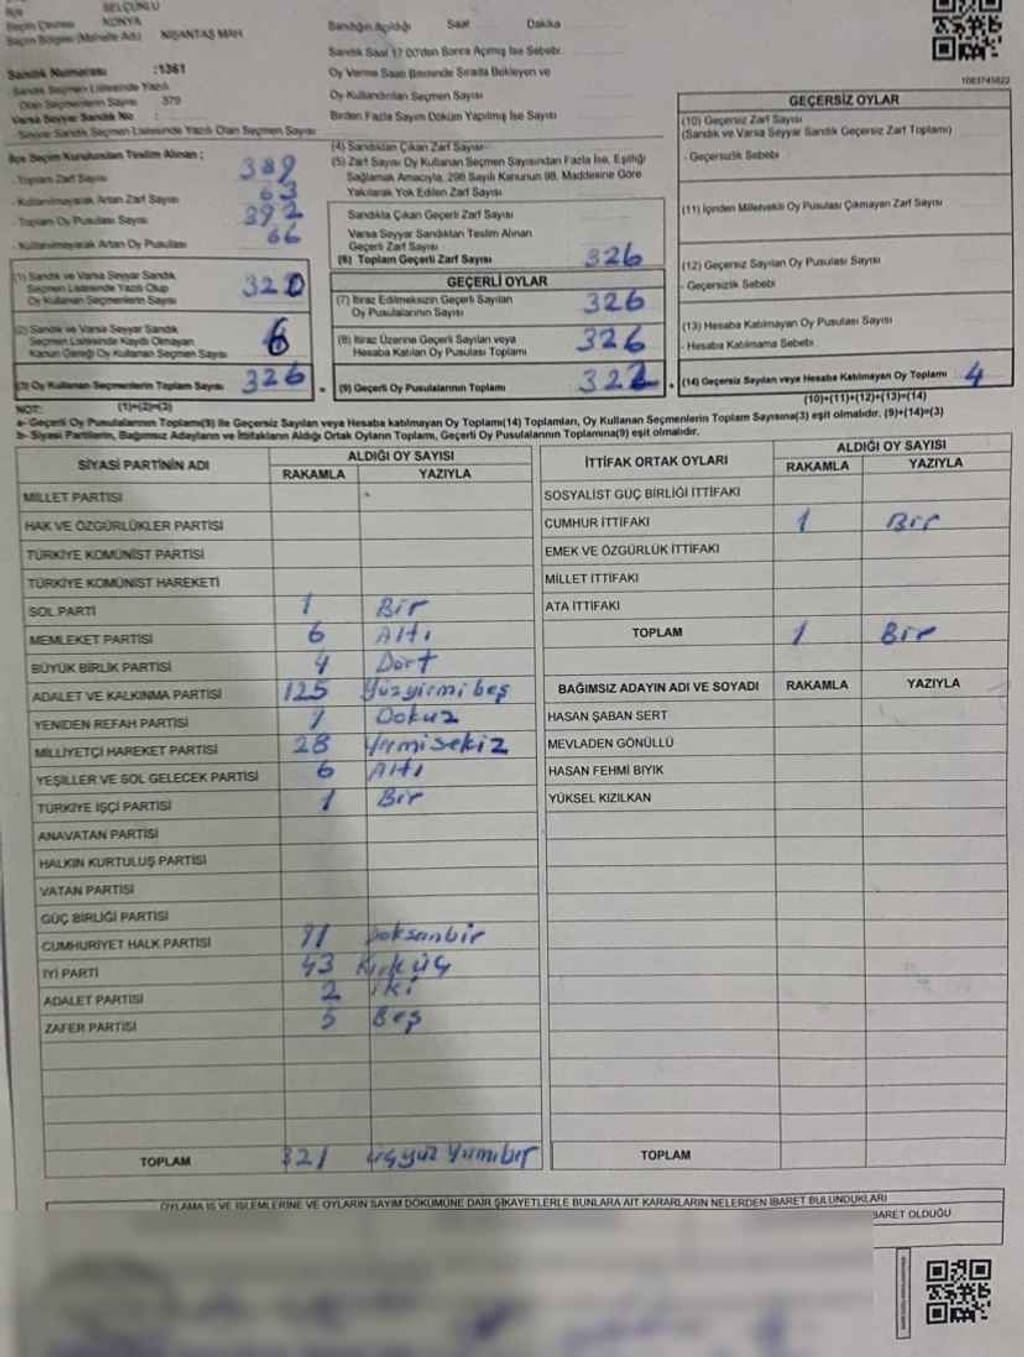 İlçe SELÇUKLU
Seçim Çevresi KONYA
Seçim Bölgesi (Mahalle Adı) NİŞANTAŞ MAH.
Sandık Numarası :1361
Sandık Seçmen Listesinde Yazılı
Olan Seçmenlerin Sayısı 379
Varsa Seyyar Sandık No :
Seyyar Sandık Seçmen Listesinde Yazılı Olan Seçmen Sayısı
Sandığın Açıldığı Saat Dakika
Sandık Saat 17.00'den Sonra Açılmış İse Sebebi
Oy Verme Saati Bitiminde Sırada Bekleyen ve
Oy Kullandırılan Seçmen Sayısı
Birden Fazla Sayım Döküm Yapılmış İse Sayısı
1083745822
İlçe Seçim Kurulundan Teslim Alınan ;
- Toplam Zarf Sayısı 389
- Kullanılmayarak Artan Zarf Sayısı 63
- Toplam Oy Pusulası Sayısı 392
- Kullanılmayarak Artan Oy Pusulası 66
(1) Sandık ve Varsa Seyyar Sandık
Seçmen Listesinde Yazılı Olup
Oy Kullanan Seçmenlerin Sayısı 320
(2) Sandık ve Varsa Seyyar Sandık
Seçmen Listesinde Kaydı Olmayan
Kanun Gereği Oy Kullanan Seçmen Sayısı 6
(3) Oy Kullanan Seçmenlerin Toplam Sayısı 326
(1)+(2)=(3)
(4) Sandıktan Çıkan Zarf Sayısı
(5) Zarf Sayısı Oy Kullanan Seçmen Sayısından Fazla İse, Eşitliği
Sağlamak Amacıyla, 298 Sayılı Kanunun 98. Maddesine Göre
Yakılarak Yok Edilen Zarf Sayısı
Sandıkta Çıkan Geçerli Zarf Sayısı
Varsa Seyyar Sandıktan Teslim Alınan
Geçerli Zarf Sayısı
(6) Toplam Geçerli Zarf Sayısı 326
GEÇERLİ OYLAR
(7) İtiraz Edilmeksizin Geçerli Sayılan
Oy Pusulalarının Sayısı 326
(8) İtiraz Üzerine Geçerli Sayılan veya
Hesaba Katılan Oy Pusulası Toplamı 326
(9) Geçerli Oy Pusulalarının Toplamı 322
GEÇERSİZ OYLAR
(10) Geçersiz Zarf Sayısı
(Sandık ve Varsa Seyyar Sandık Geçersiz Zarf Toplamı)
- Geçersizlik Sebebi
(11) İçinden Milletvekili Oy Pusulası Çıkmayan Zarf Sayısı
(12) Geçersiz Sayılan Oy Pusulası Sayısı
- Geçersizlik Sebebi
(13) Hesaba Katılmayan Oy Pusulası Sayısı
- Hesaba Katılmama Sebebi
(14) Geçersiz Sayılan veya Hesaba Katılmayan Oy Toplamı 4
(10)+(11)+(12)+(13)=(14)
NOT:
a- Geçerli Oy Pusulalarının Toplamı(9) ile Geçersiz Sayılan veya Hesaba katılmayan Oy Toplamı(14) Toplamları, Oy Kullanan Seçmenlerin Toplam Sayısına(3) eşit olmalıdır. (9)+(14)=(3)
b- Siyasi Partilerin, Bağımsız Adayların ve İttifakların Aldığı Ortak Oyların Toplamı, Geçerli Oy Pusulalarının Toplamına(9) eşit olmalıdır.
SİYASİ PARTİNİN ADI ALDIĞI OY SAYISI
RAKAMLA YAZIYLA
MİLLET PARTİSİ
HAK VE ÖZGÜRLÜKLER PARTİSİ
TÜRKİYE KOMÜNİST PARTİSİ
TÜRKİYE KOMÜNİST HAREKETİ
SOL PARTİ 1 Bir
MEMLEKET PARTİSİ 6 Altı
BÜYÜK BİRLİK PARTİSİ 4 Dört
ADALET VE KALKINMA PARTİSİ 125 Yüzyirmibeş
YENİDEN REFAH PARTİSİ 9 Dokuz
MİLLİYETÇİ HAREKET PARTİSİ 28 Yirmisekiz
YEŞİLLER VE SOL GELECEK PARTİSİ 6 Altı
TÜRKİYE İŞÇİ PARTİSİ 1 Bir
ANAVATAN PARTİSİ
HALKIN KURTULUŞ PARTİSİ
VATAN PARTİSİ
GÜÇ BİRLİĞİ PARTİSİ
CUMHURİYET HALK PARTİSİ 91 Doksanbir
İYİ PARTİ 43 Kırküç
ADALET PARTİSİ 2 iki
ZAFER PARTİSİ 5 Beş
TOPLAM 321 üçyüz Yirmibir
İTTİFAK ORTAK OYLARI ALDIĞI OY SAYISI
RAKAMLA YAZIYLA
SOSYALİST GÜÇ BİRLİĞİ İTTİFAKI
CUMHUR İTTİFAKI 1 Bir
EMEK VE ÖZGÜRLÜK İTTİFAKI
MİLLET İTTİFAKI
ATA İTTİFAKI
TOPLAM 1 Bir
BAĞIMSIZ ADAYIN ADI VE SOYADI RAKAMLA YAZIYLA
HASAN ŞABAN SERT
MEVLADEN GÖNÜLLÜ
HASAN FEHMİ BIYIK
YÜKSEL KIZILKAN
TOPLAM
OYLAMA İŞ VE İŞLEMLERİNE VE OYLARIN SAYIM DÖKÜMÜNE DAİR ŞİKAYETLERLE BUNLARA AİT KARARLARIN NELERDEN İBARET BULUNDUKLARI
BARET OLDUĞU